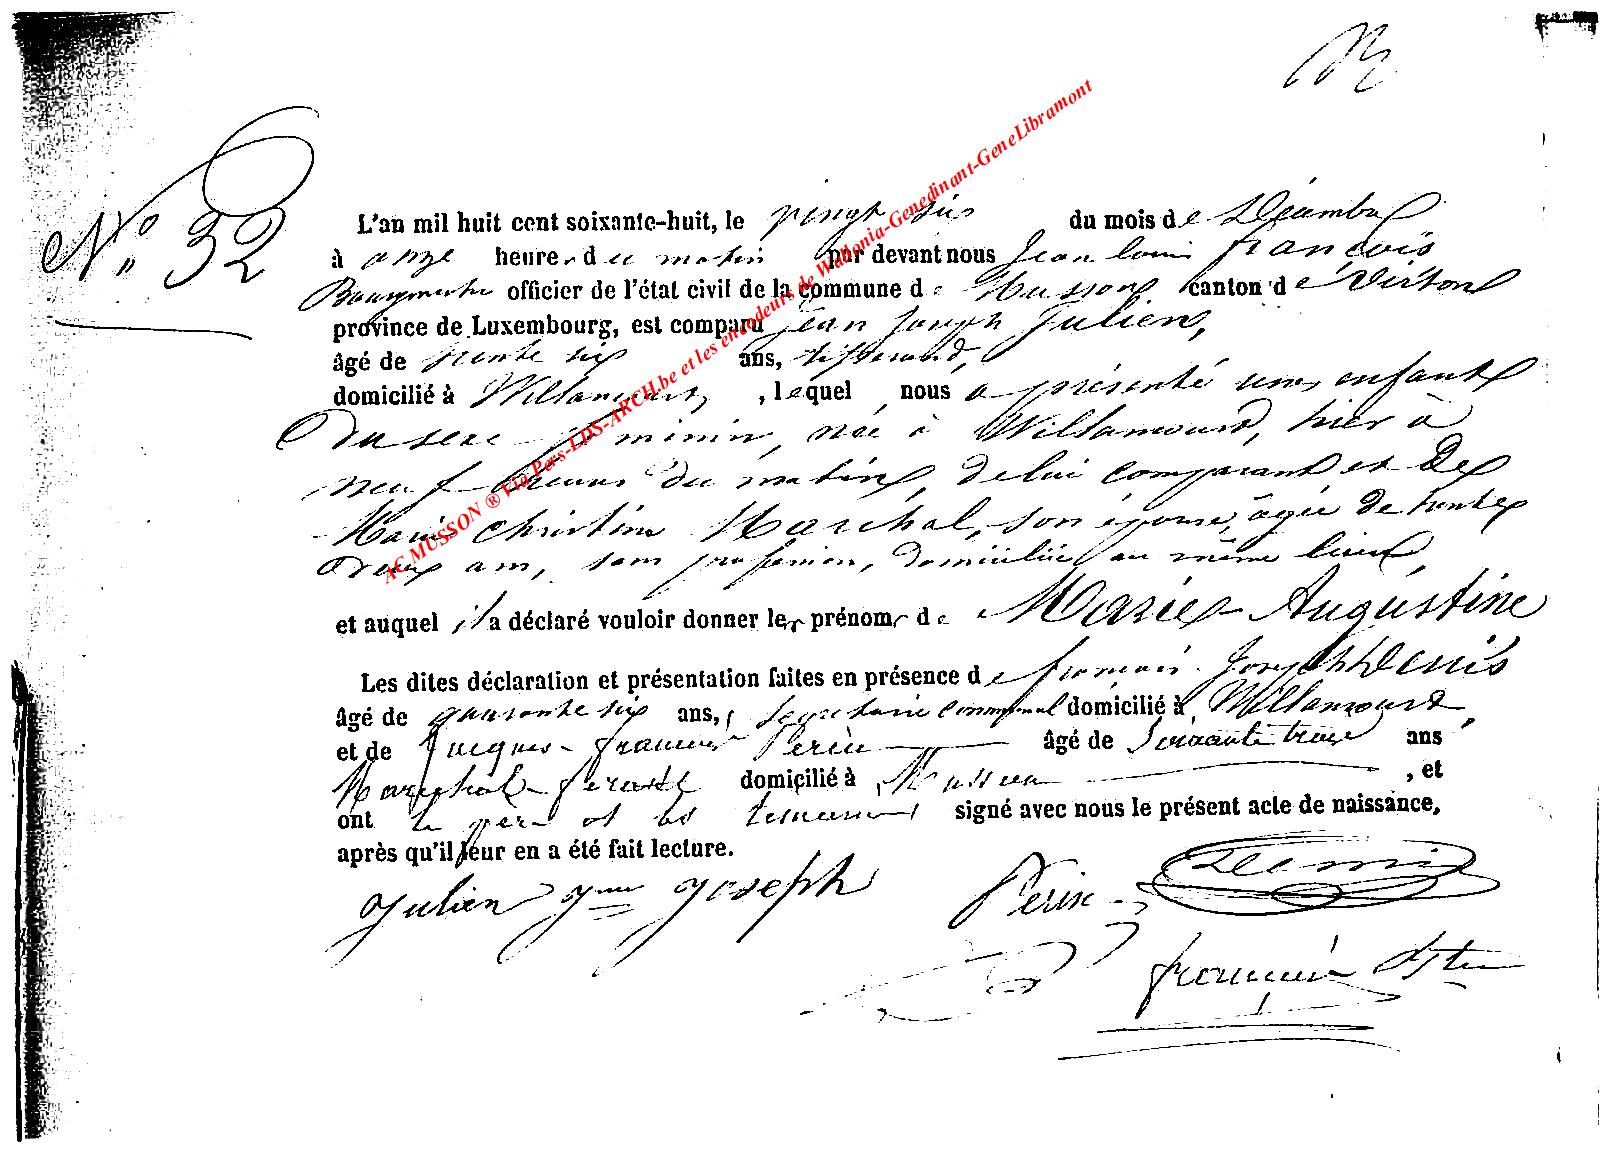 N° 32
L'an mil huit cent soixante-huit, le vingt six du mois de Décembre
à onze heures du matin par devant nous Jean Louis François
Bourgmestre officier de l'état civil de la commune de Musson canton de Virton
province de Luxembourg, est comparu Jean Joseph Julien,
âgé de trente six ans, tisserand,
domicilié à Willancourt, lequel nous a présenté un enfant
du sexe féminin, née à Willancourt, hier à
neuf heures du matin, de lui comparant et de
Marie Christine Marchal, son épouse, âgée de trente
deux ans, sans profession, domiciliée au même lieu,
et auquel il a déclaré vouloir donner les prénoms de Marie Augustine
Les dites déclaration et présentation faites en présence de François Joseph Denis
âgé de quarante six ans, secrétaire communal domicilié à Willancourt,
et de Jacques François Perin âgé de soixante trois ans
Maréchal ferant domicilié à Musson, et
ont le père et les témoins signé avec nous le présent acte de naissance,
après qu'il leur en a été fait lecture.
Julien Jean Joseph Perin Denis
François
AC MUSSON ® Via Pers-LDS-ARCH.be et les encodeurs de Wallonia-Genedinant-GeneLibramont